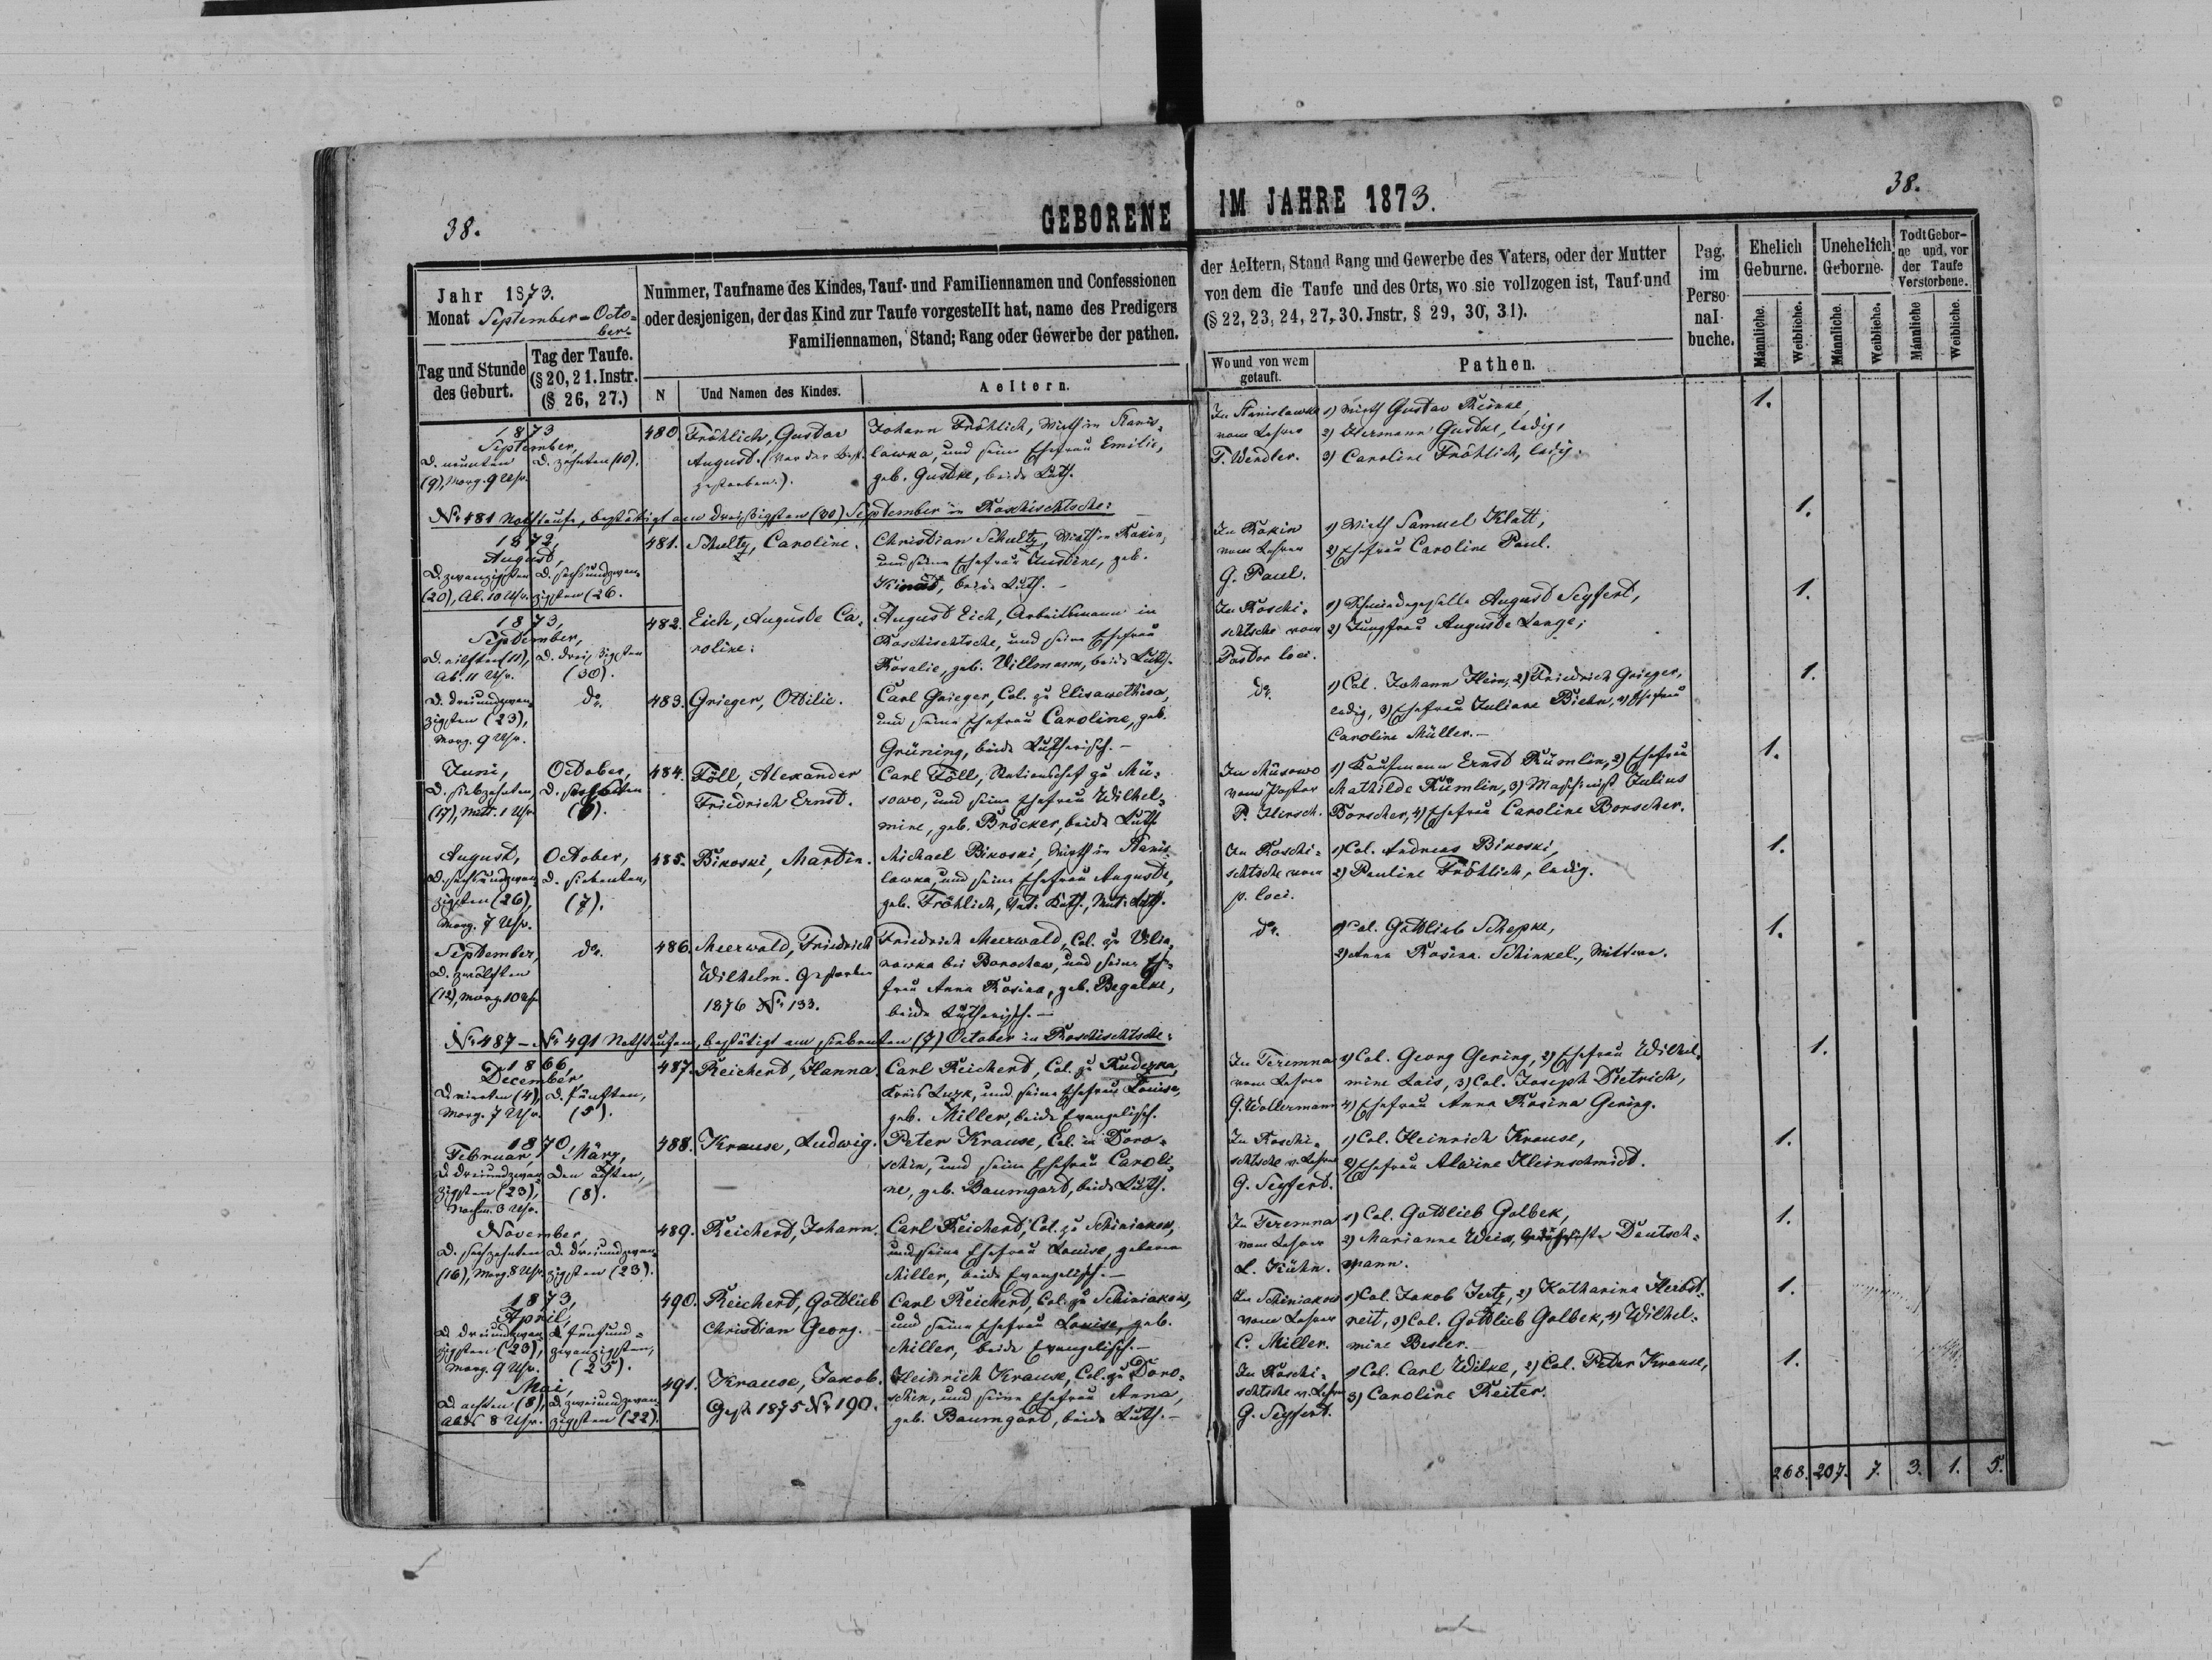 38.
GEBORENE
IM JAHRE 1873.
38.
Jahr 1873.
Monat September-Octo=
ber.
Tag und Stunde
des Geburt.
Tag der Taufe.
(§ 20, 21. Instr.
(§ 26, 27.)
Nummer, Taufname des Kindes, Tauf- und Familiennamen und Confessionen
oder desjenigen, der das Kind zur Taufe vorgestellt hat, name des Predigers
Familiennamen, Stand; Rang oder Gewerbe der pathen.
N
Und Namen des Kindes.
Aeltern.
der Aeltern, Stand Rang und Gewerbe des Vaters, oder der Mutter
von dem die Taufe und des Orts, wo sie vollzogen ist, Tauf- und
(§ 22, 23, 24, 27, 30. Jnstr, § 29, 30, 31).
Wo und von wem
getauft.
Pathen.
Pag.
im
Perso-
nal-
buche.
Ehelich
Geburne.
Unehelich
Geborne.
Todt Gebor-
ne und, vor
der Taufe
Verstorbene.
Männliche.
Weibliche.
Männliche.
Weibliche.
Männliche
Weibliche.
1873
September,
D. neunten
(9), Morg. 9 Uhr.
D. zehnten (10).
480.
Fröhlich, Gustav
August. (Vor der Best.
gestorben.).
Johann Fröhlich, Wirth in Stanis=
lawka, und seine Ehefrau Emilie,
geb. Gustke, beide Luth.
In Stanislawka
vom Lehrer
F. Wendler.
1) Wirth Gustav Reinke,
2) Hermann Gustke, ledig,
3) Caroline Fröhlich, ledig.
1.
No 481 Nothtaufe, bestätigt am dreißigsten (30) September in Roschischtsche:
1872,
August,
D. zwanzigsten
(20), Ab. 10 Uhr.
D. sechsundzwan=
zigsten (26.
481.
Schultz, Caroline.
Christian Schultz, Wirth in Rakin,
und seine Ehefrau Justine, geb.
Kinat, beide Luth.
In Rokin
vom Lehrer
G. Paul.
1) Wirth Samuel Klatt,
2) Ehefrau Caroline Paul.
1.
1873,
September,
D. eilften (11),
Ab. 11 Uhr.
D. dreißigsten
(30).
482.
Eich, Auguste Ca=
roline.
August Eich, Arbeitsmann in
Roschischtsche, und seine Ehefrau
Rosalie, geb. Villmann, beide Luth.
In Roschi=
schtsche vom
Pastor loci.
1) Schmiedegeselle August Seyfert,
2) Jungfrau Auguste Lange;
1.
D. dreiundzwan=
zigsten (23),
Morg. 9 Uhr.
do.
483.
Grieger, Ottilie.
Carl Grieger, Col. zu Elisawethisa,
und seine Ehefrau Caroline, geb.
Grüning, beide Lutherisch.
do.
1) Col. Johann Hein, 2) Friedrich Grieger,
ledig, 3) Ehefrau Juliane Biehn, 4) Ehefrau
Caroline Müller.
1.
Juni,
D. siebzehnten,
(17), Mitt. 1 Uhr
October,
D. sechsten
(6).
484.
Föll, Alexander
Friedrich Ernst.
Carl Föll, Stationschef zu Mü=
sowo, und seine Ehefrau Wilhel=
mine, geb. Bröcker, beide Luth.
In Müsowo
vom Pastor
P. Hirsch.
1) Kaufmann Ernst Rümlin, 2) Ehefrau
Mathilde Rümlin, 3) Maschinist Julius
Borscher, 4) Ehefrau Caroline Borscher.
1.
August,
D. sechsundzwan=
zigsten (26),
Morg. 7 Uhr.
October,
D. siebenten,
(7).
485.
Bikoski, Martin.
Michael Bikoski, Wirth in Stanis=
lawka, und seine Ehefrau Auguste,
geb. Fröhlich, Vat: Kath., Mut: Luth.
In Roschi=
schtsche vom
p. loci.
1) Col. Andreas Bikoski,
2) Pauline Fröhlich, ledig.
1.
September,
D. zwölften
(12), Morg. 10 Uhr
do.
486.
Meerwald, Friedrich
Wilhelm. Gestorben
1876 No 133.
Friedrich Meerwald, Col. zu Ulia=
nowka bei Borochow, und seine Eh=
frau Anna Rosina, geb. Begalke,
beide Lutherisch.
do.
1) Col. Gottlieb Schepke,
2) Anna Rosina Schinkel, Wittwe.
1.
No 487 – No 491 Nothtaufen, bestätigt am siebenten (7) October in Roschischtsche:
1866,
December
D. vierten (4),
Morg. 7 Uhr.
D. fünften,
(5).
487.
Reichert, Hanna.
Carl Reichert, Col. zu Rudezka,
Kreis Luzk, und seine Ehefrau Louise,
geb. Miller, beide Evangelisch.
In Teremna
vom Lehrer
G. Wollermann
1) Col. Georg Gering, 2) Ehefrau Wilhel=
mine Lais, 3) Col. Joseph Dietrich,
4) Ehefrau Anna Rosina Gering.
1.
1870,
Februar,
D. dreiundzwan=
zigsten (23),
Nachm. 3 Uhr.
März,
Den achten,
(8).
488.
Krause, Ludwig.
Peter Krause, Col. in Doro=
schin, und seine Ehefrau Caroli=
ne, geb. Baumgart, beide Luth.
In Roschi=
schtsche v. Lehrer
G. Seyfert.
1) Col. Heinrich Krause,
2) Ehefrau Alwine Kleinschmidt.
1.
November,
D. sechzehnten
(16), Morg. 8 Uhr.
D. dreiundzwan=
zigsten (23).
489.
Reichert, Johann.
Carl Reichert, Col. zu Schiniakow,
und seine Ehefrau Louise, geborne
Miller, beide Evangelisch.
In Teremna
vom Lehrer
L. Kühn.
1) Col. Gottlieb Golbek,
2) Marianne Weis, Deutsch=
mann.
1.
1873,
April,
D. dreiundzwan=
zigsten (23),
Morg. 9 Uhr.
D. fünfund=
zwanzigsten,
(25).
490.
Reichert, Gottlieb
Christian Georg.
Carl Reichert, Col. zu Schiniakow,
und seine Ehefrau Louise, geb.
Miller, beide Evangelisch.
In Schiniakow
vom Lehrer
C. Miller.
1) Col. Jakob Jertz, 2) Katharina Herbst=
reit, 3) Col. Gottlieb Golbek, 4) Wilhel=
mine Besler.
1.
Mai,
D. achten (8),
Abds 8 Uhr.
D. zweiundzwan=
zigsten (22).
491.
Krause, Jakob.
Gest. 1875 No 190.
Heinrich Krause, Col. zu Doro=
schin, und seine Ehefrau Anna,
geb. Baumgart, beide Luth.
In Roschi=
schtsche v. Lehrer
G. Seyfert.
1) Col. Carl Wilke, 2) Col. Peter Krause,
3) Caroline Reiter.
1.
268. 207. 7. 3. 1. 5.